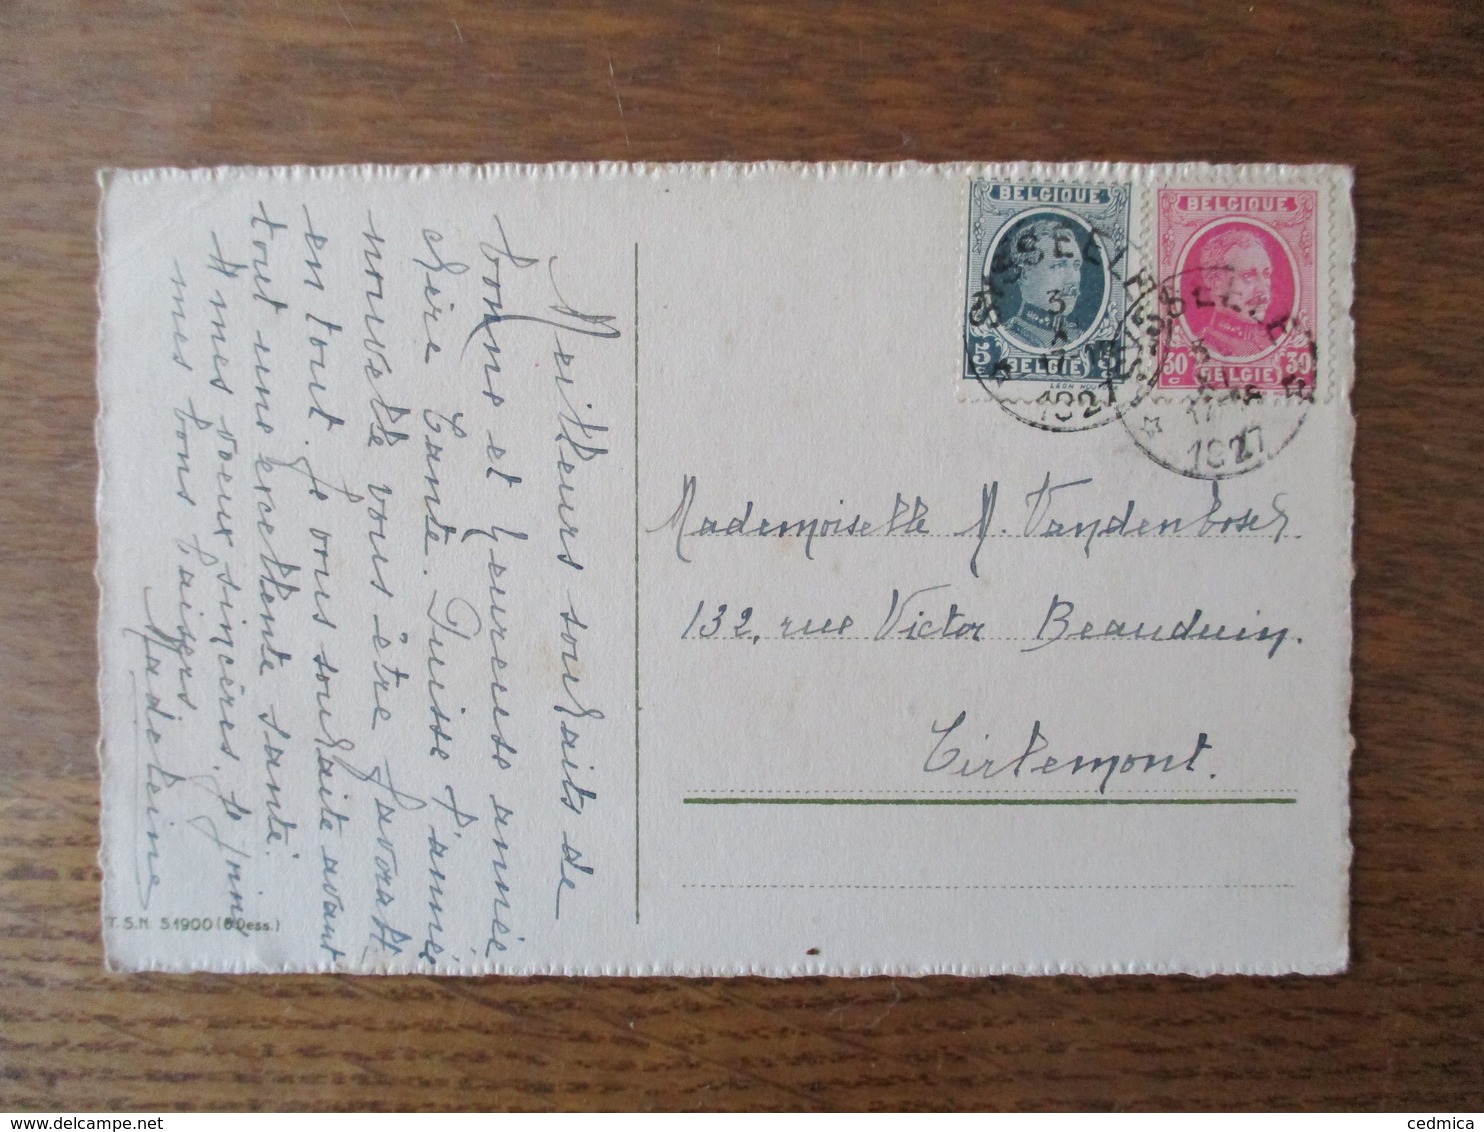 Meilleurs souhaits de
bonne et heureuse année
chère tante. Puisse l'année
nouvelle vous être favorable
en tout. Je vous souhaite avant
tout une excellente santé.
A mes voeux sincères, je joins
mes bons baisers
Madeleine
T.S.N. S.1900 (6 Dess.)
BELGIQUE
5c 5c
BELGIE
BELGIQUE
30c 30c
BELGIE
3
XI
1927
3
XI
1927
Mademoiselle M. Vandenbosch
132, rue Victor Beauduin.
Tirlemont.
cedmica